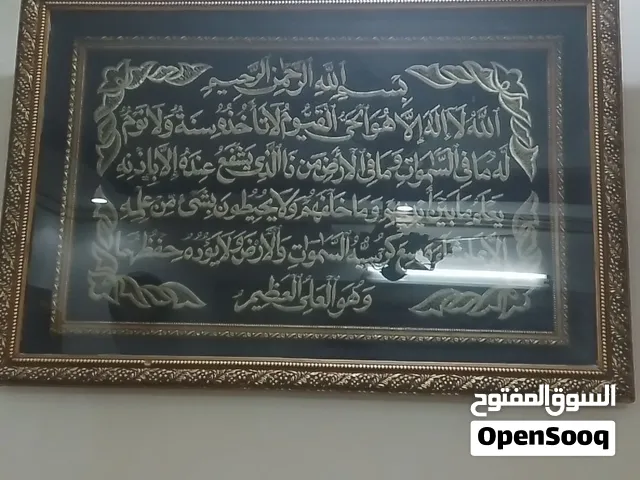 بسم الله الرحمن الرحيم
الله لا إله إلا هو الحي القيوم لا تأخذه سنة ولا نوم
له ما في السموات وما في الأرض من ذا الذي يشفع عنده إلا بإذنه
يعلم ما بين أيديهم وما خلفهم ولا يحيطون بشيء من علمه
إلا بما شاء وسع كرسيه السموات والأرض ولا يؤده حفظهما
وهو العلي العظيم
السوق المفتوح
OpenSooq